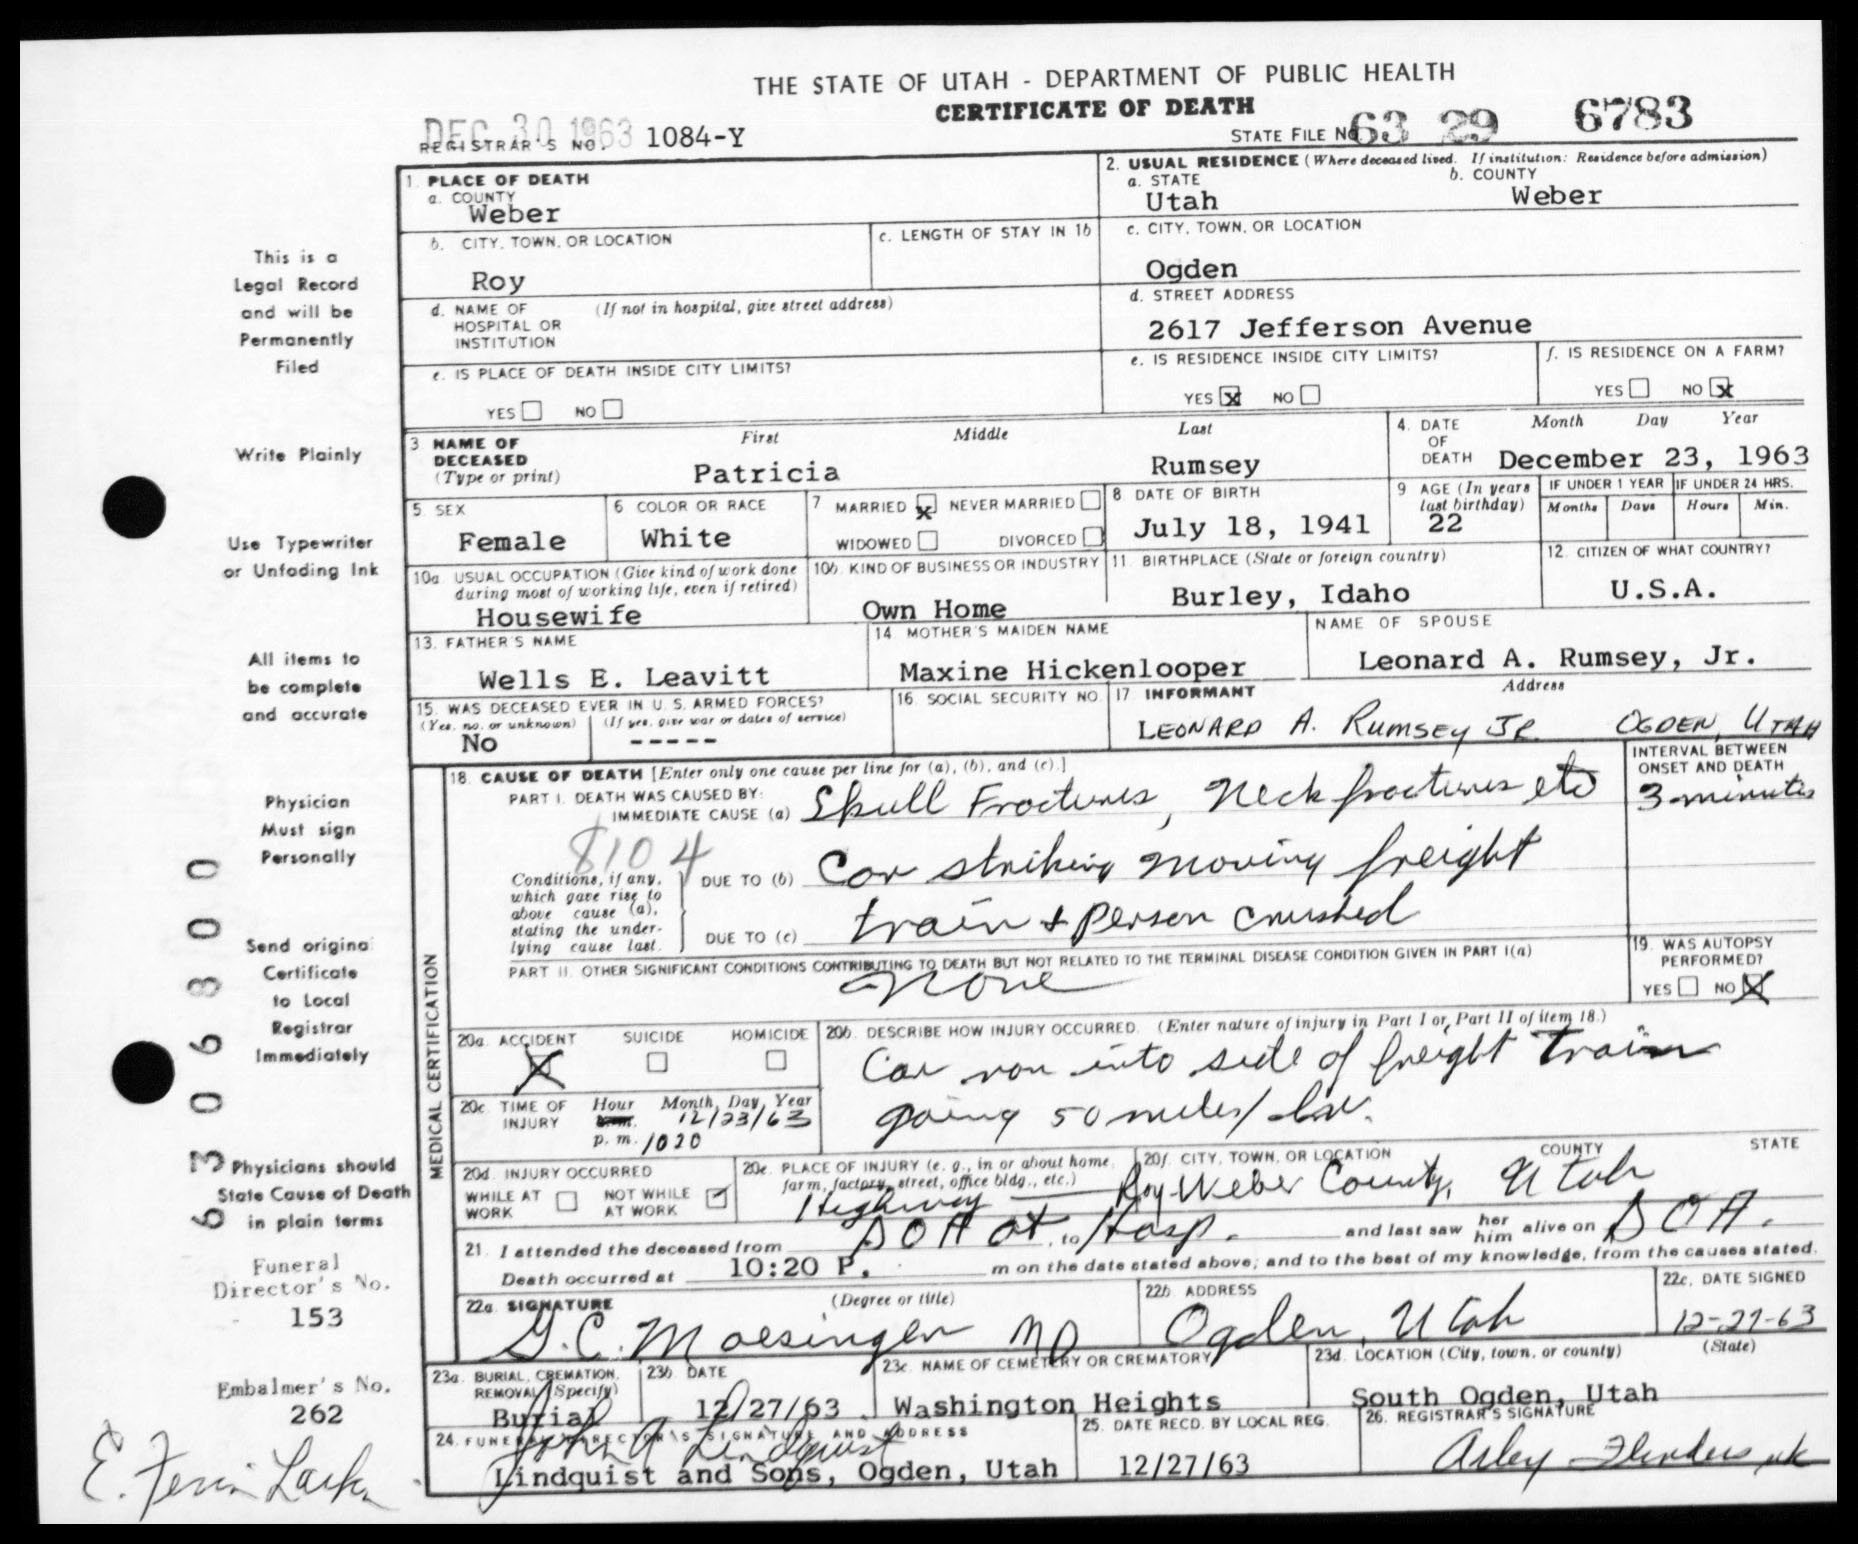 THE STATE OF UTAH - DEPARTMENT OF PUBLIC HEALTH
CERTIFICATE OF DEATH
DEC 30 1963
REGISTRAR'S NO. 1084-Y
STATE FILE NO. 63 29 6783
1. PLACE OF DEATH
a. COUNTY
Weber
2. USUAL RESIDENCE (Where deceased lived. If institution: Residence before admission)
a. STATE b. COUNTY
Utah Weber
b. CITY, TOWN, OR LOCATION
Roy
c. LENGTH OF STAY IN 1b
c. CITY, TOWN, OR LOCATION
Ogden
d. NAME OF HOSPITAL OR INSTITUTION (If not in hospital, give street address)
d. STREET ADDRESS
2617 Jefferson Avenue
e. IS PLACE OF DEATH INSIDE CITY LIMITS?
YES NO
e. IS RESIDENCE INSIDE CITY LIMITS?
YES X NO
f. IS RESIDENCE ON A FARM?
YES NO X
3. NAME OF DECEASED (Type or print)
First Middle Last
Patricia Rumsey
4. DATE OF DEATH Month Day Year
December 23, 1963
5. SEX
Female
6 COLOR OR RACE
White
7 MARRIED X NEVER MARRIED
WIDOWED DIVORCED
8 DATE OF BIRTH
July 18, 1941
9 AGE (In years last birthday)
22
IF UNDER 1 YEAR IF UNDER 24 HRS.
Months Days Hours Min.
10a. USUAL OCCUPATION (Give kind of work done during most of working life, even if retired)
Housewife
10b. KIND OF BUSINESS OR INDUSTRY
Own Home
11. BIRTHPLACE (State or foreign country)
Burley, Idaho
12. CITIZEN OF WHAT COUNTRY?
U.S.A.
13. FATHER'S NAME
Wells E. Leavitt
14. MOTHER'S MAIDEN NAME
Maxine Hickenlooper
NAME OF SPOUSE
Leonard A. Rumsey, Jr.
15. WAS DECEASED EVER IN U. S. ARMED FORCES?
(Yes, no, or unknown) (If yes, give war or dates of service)
No -----
16. SOCIAL SECURITY NO.
17 INFORMANT Address
LEONARD A. RUMSEY JR. OGDEN, UTAH
MEDICAL CERTIFICATION
18. CAUSE OF DEATH [Enter only one cause per line for (a), (b), and (c).]
INTERVAL BETWEEN ONSET AND DEATH
PART I. DEATH WAS CAUSED BY:
IMMEDIATE CAUSE (a) Skull Fractures, Neck fractures etc
3 minutes
8104
Conditions, if any, which gave rise to above cause (a), stating the underlying cause last.
DUE TO (b) Car striking moving freight
DUE TO (c) train + person crushed
PART II. OTHER SIGNIFICANT CONDITIONS CONTRIBUTING TO DEATH BUT NOT RELATED TO THE TERMINAL DISEASE CONDITION GIVEN IN PART I(a)
None
19. WAS AUTOPSY PERFORMED?
YES NO X
20a. ACCIDENT SUICIDE HOMICIDE
X
20b. DESCRIBE HOW INJURY OCCURRED. (Enter nature of injury in Part I or Part II of item 18.)
Car ran into side of freight train
going 50 miles/hr.
20c. TIME OF INJURY Hour Month, Day, Year
a.m. 12/23/63
p. m. 1020
20d. INJURY OCCURRED
WHILE AT WORK NOT WHILE AT WORK
20e. PLACE OF INJURY (e. g., in or about home, farm, factory, street, office bldg., etc.)
Highway
20f. CITY, TOWN, OR LOCATION COUNTY STATE
Roy Weber County, Utah
21. I attended the deceased from DOA at, to Hosp. and last saw her him alive on DOA.
Death occurred at 10:20 P. m on the date stated above; and to the best of my knowledge, from the causes stated.
22a. SIGNATURE (Degree or title)
G. C. Moesinger MD
22b. ADDRESS
Ogden, Utah
22c. DATE SIGNED
12-27-63
23a. BURIAL, CREMATION, REMOVAL (Specify)
Burial
23b. DATE
12/27/63
23c. NAME OF CEMETERY OR CREMATORY
Washington Heights
23d. LOCATION (City, town, or county) (State)
South Ogden, Utah
24. FUNERAL DIRECTOR'S SIGNATURE AND ADDRESS
John A Lindquist
Lindquist and Sons, Ogden, Utah
25. DATE RECD. BY LOCAL REG.
12/27/63
26. REGISTRAR'S SIGNATURE
Arley Flinders
This is a
Legal Record
and will be
Permanently
Filed
Write Plainly
Use Typewriter
or Unfading Ink
All items to
be complete
and accurate
Physician
Must sign
Personally
Send original
Certificate
to Local
Registrar
Immediately
Physicians should
State Cause of Death
in plain terms
6306800
Funeral
Director's No.
153
Embalmer's No.
262
E. Fenin Larkin